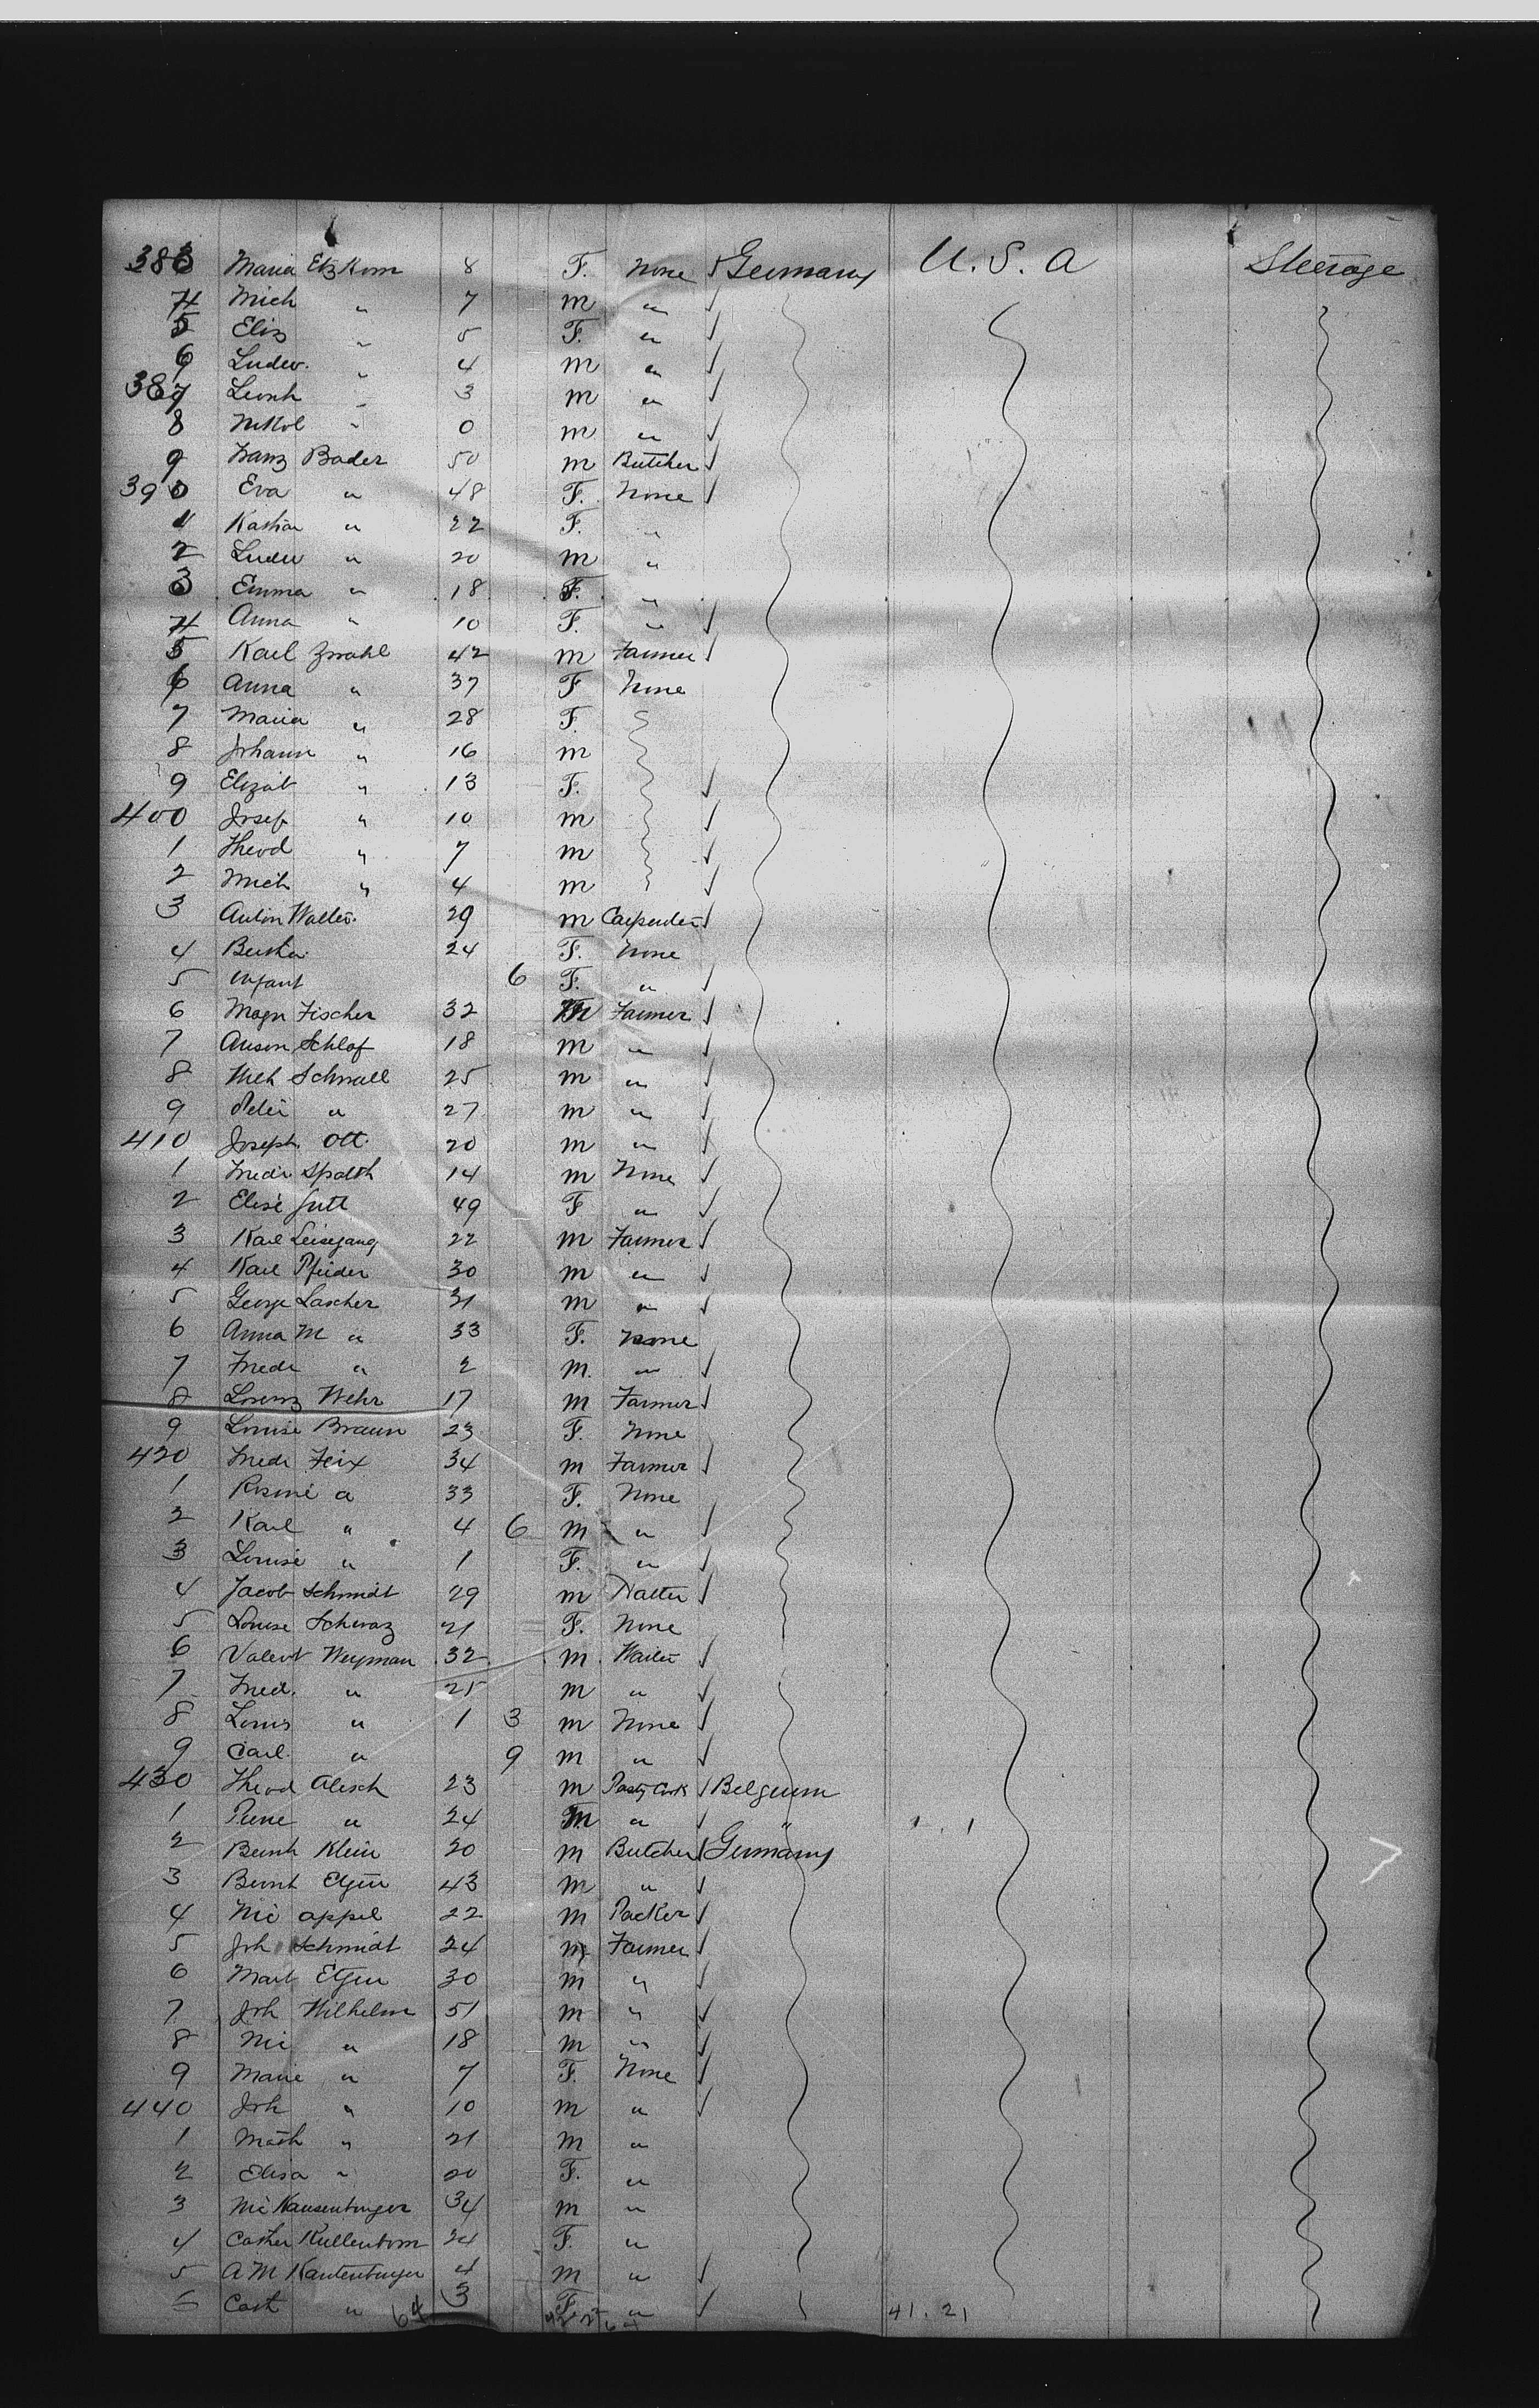 383 Maria Etzkorn 8 F. None √ Germany U. S. A Steerage
4 Mich " 7 m " √
5 Elis " 5 F. " √
6 Ludw. " 4 m " √
387 Leonh " 3 m " √
8 Nikol " 0 m " √
9 Franz Bader 50 m Butcher √
390 Eva " 48 F. None √
1 Katha " 22 F. "
2 Ludw " 20 m "
3 Emma " 18 F. "
4 Anna " 10 F. " √
5 Karl 42 m Farmer √
6 Anna " 37 F None
7 Maria " 28 F.
8 Johann " 16 m
9 Elizab " 13 F. √
400 Josef " 10 m √
1 Theod " 7 m √
2 Mich " 4 m √
3 Anton Walter 29 m Carpenter √
4 Bertha 24 F. None
5 Infant 6 F. " √
6 Magn Fischer 32 m Farmer √
7 Schlaf 18 m " √
8 Schnall 25 m " √
9 Peter " 27 m " √
410 Joseph Ott 20 m " √
1 Fredr Spaeth 14 m None √
2 Elise 49 F " √
3 Karl Leisegang 22 m Farmer √
4 Karl 30 m " √
5 George Lascher 31 m " √
6 Anna M " 33 F. None
7 Fredr " 2 M. " √
8 Lorenz Wehr 17 m Farmer √
9 Louise Braun 23 F. None
420 Fredr Feix 34 m Farmer √
1 Rosine " 33 F. None
2 Karl " 4 6 m " √
3 Louise " 1 F. " √
4 Jacob Schmidt 29 m Hatter √
5 Louise Schwaz 21 F. None
6 Valent Weyman 32 m Waiter √
7 Fred. " 25 m " √
8 Louis " 1 3 m None √
9 Carl " 9 m " √
430 Theod Alesch 23 m Pastry Cook √ Belgium
1 " 24 m " √ "
2 Bernh Klein 20 m Butcher √ Germany
3 Bernh 43 m " √
4 Nic Appel 22 m Packer √
5 Joh Schmidt 24 m Farmer √
6 Mart 30 m " √
7 Joh Wilhelm 51 m " √
8 Nic " 18 m " √
9 Marie " 7 F. None √
440 Joh " 10 m " √
1 Math " 21 m "
2 Elisa " 20 F. "
3 Nic 34 m "
4 Cather Kullenborn 24 F. "
5 A M Kautenburger 4 m " √
6 Cath " 3 F. " √
64 41. 21